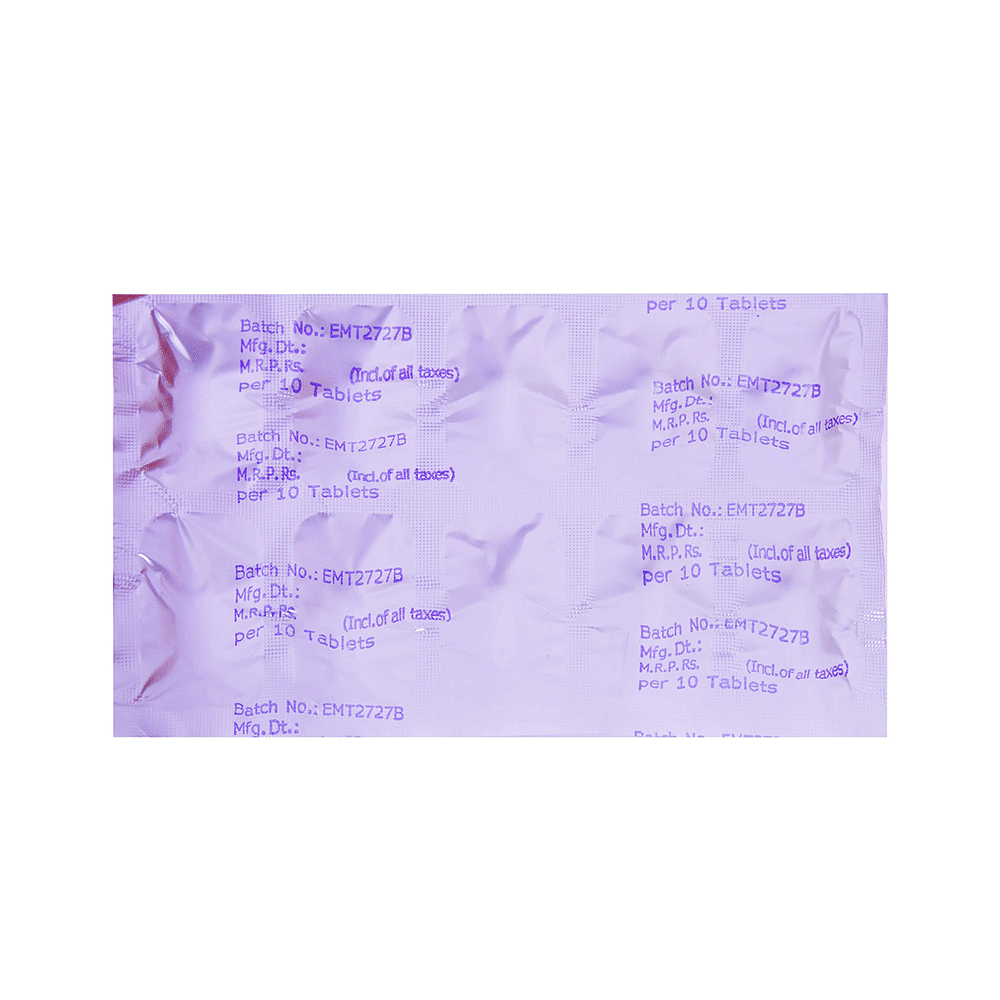 per 10 Tablets
Batch No.: EMT2727B
Mfg. Dt.:
M.R.P. Rs. (Incl. of all taxes)
per 10 Tablets
Batch No.: EMT2727B
Mfg. Dt.:
M.R.P. Rs. (Incl. of all taxes)
per 10 Tablets
Batch No.: EMT2727B
Mfg. Dt.:
M.R.P. Rs. (Incl. of all taxes)
per 10 Tablets
Batch No.: EMT2727B
Mfg. Dt.:
M.R.P. Rs. (Incl. of all taxes)
per 10 Tablets
Batch No.: EMT2727B
Mfg. Dt.:
M.R.P. Rs. (Incl. of all taxes)
per 10 Tablets
Batch No.: EMT2727B
Mfg. Dt.:
M.R.P. Rs. (Incl. of all taxes)
per 10 Tablets
Batch No.: EMT2727B
Mfg. Dt.: